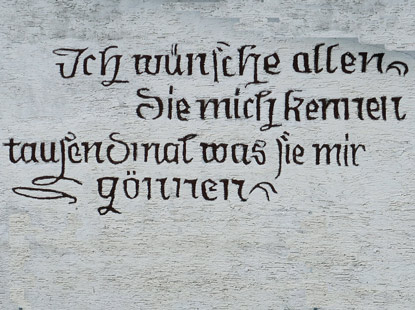 Ich wünsche allen
die mich kennen
tausendmal was sie mir
gönnen